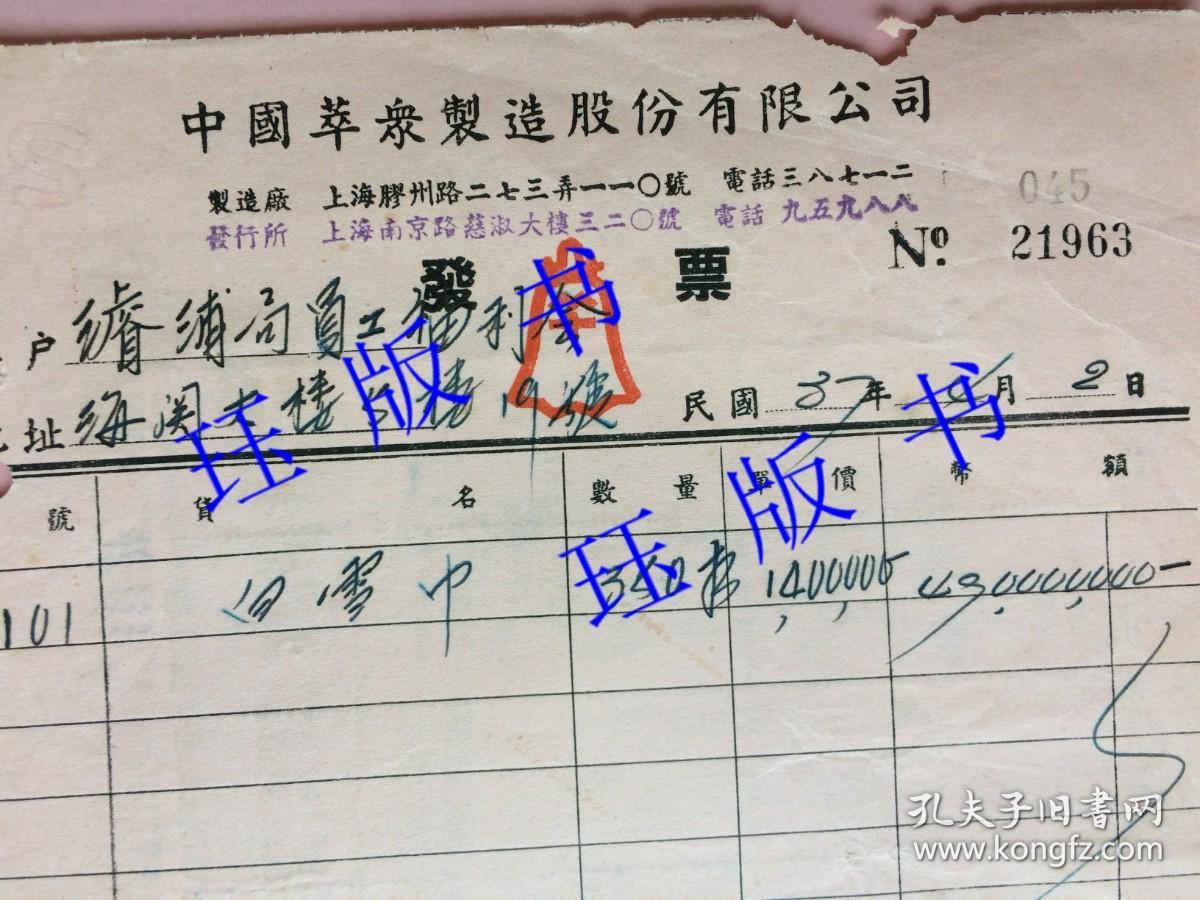 中國萃衆製造股份有限公司
製造廠 上海膠州路二七三弄一一〇號 電話三八七一二
發行所 上海南京路慈淑大樓三二〇號 電話 九五九八八
045
No. 21963
發 票
户 濬浦局員工福利会
址 海関大楼 楼19號
民國 37年 月 2日
號 貨 名 數量 單價 幣 額
101 白雪巾 350 1,400,000 490,000,000-
珏版书
珏版书
孔夫子旧书网
www.kongfz.com